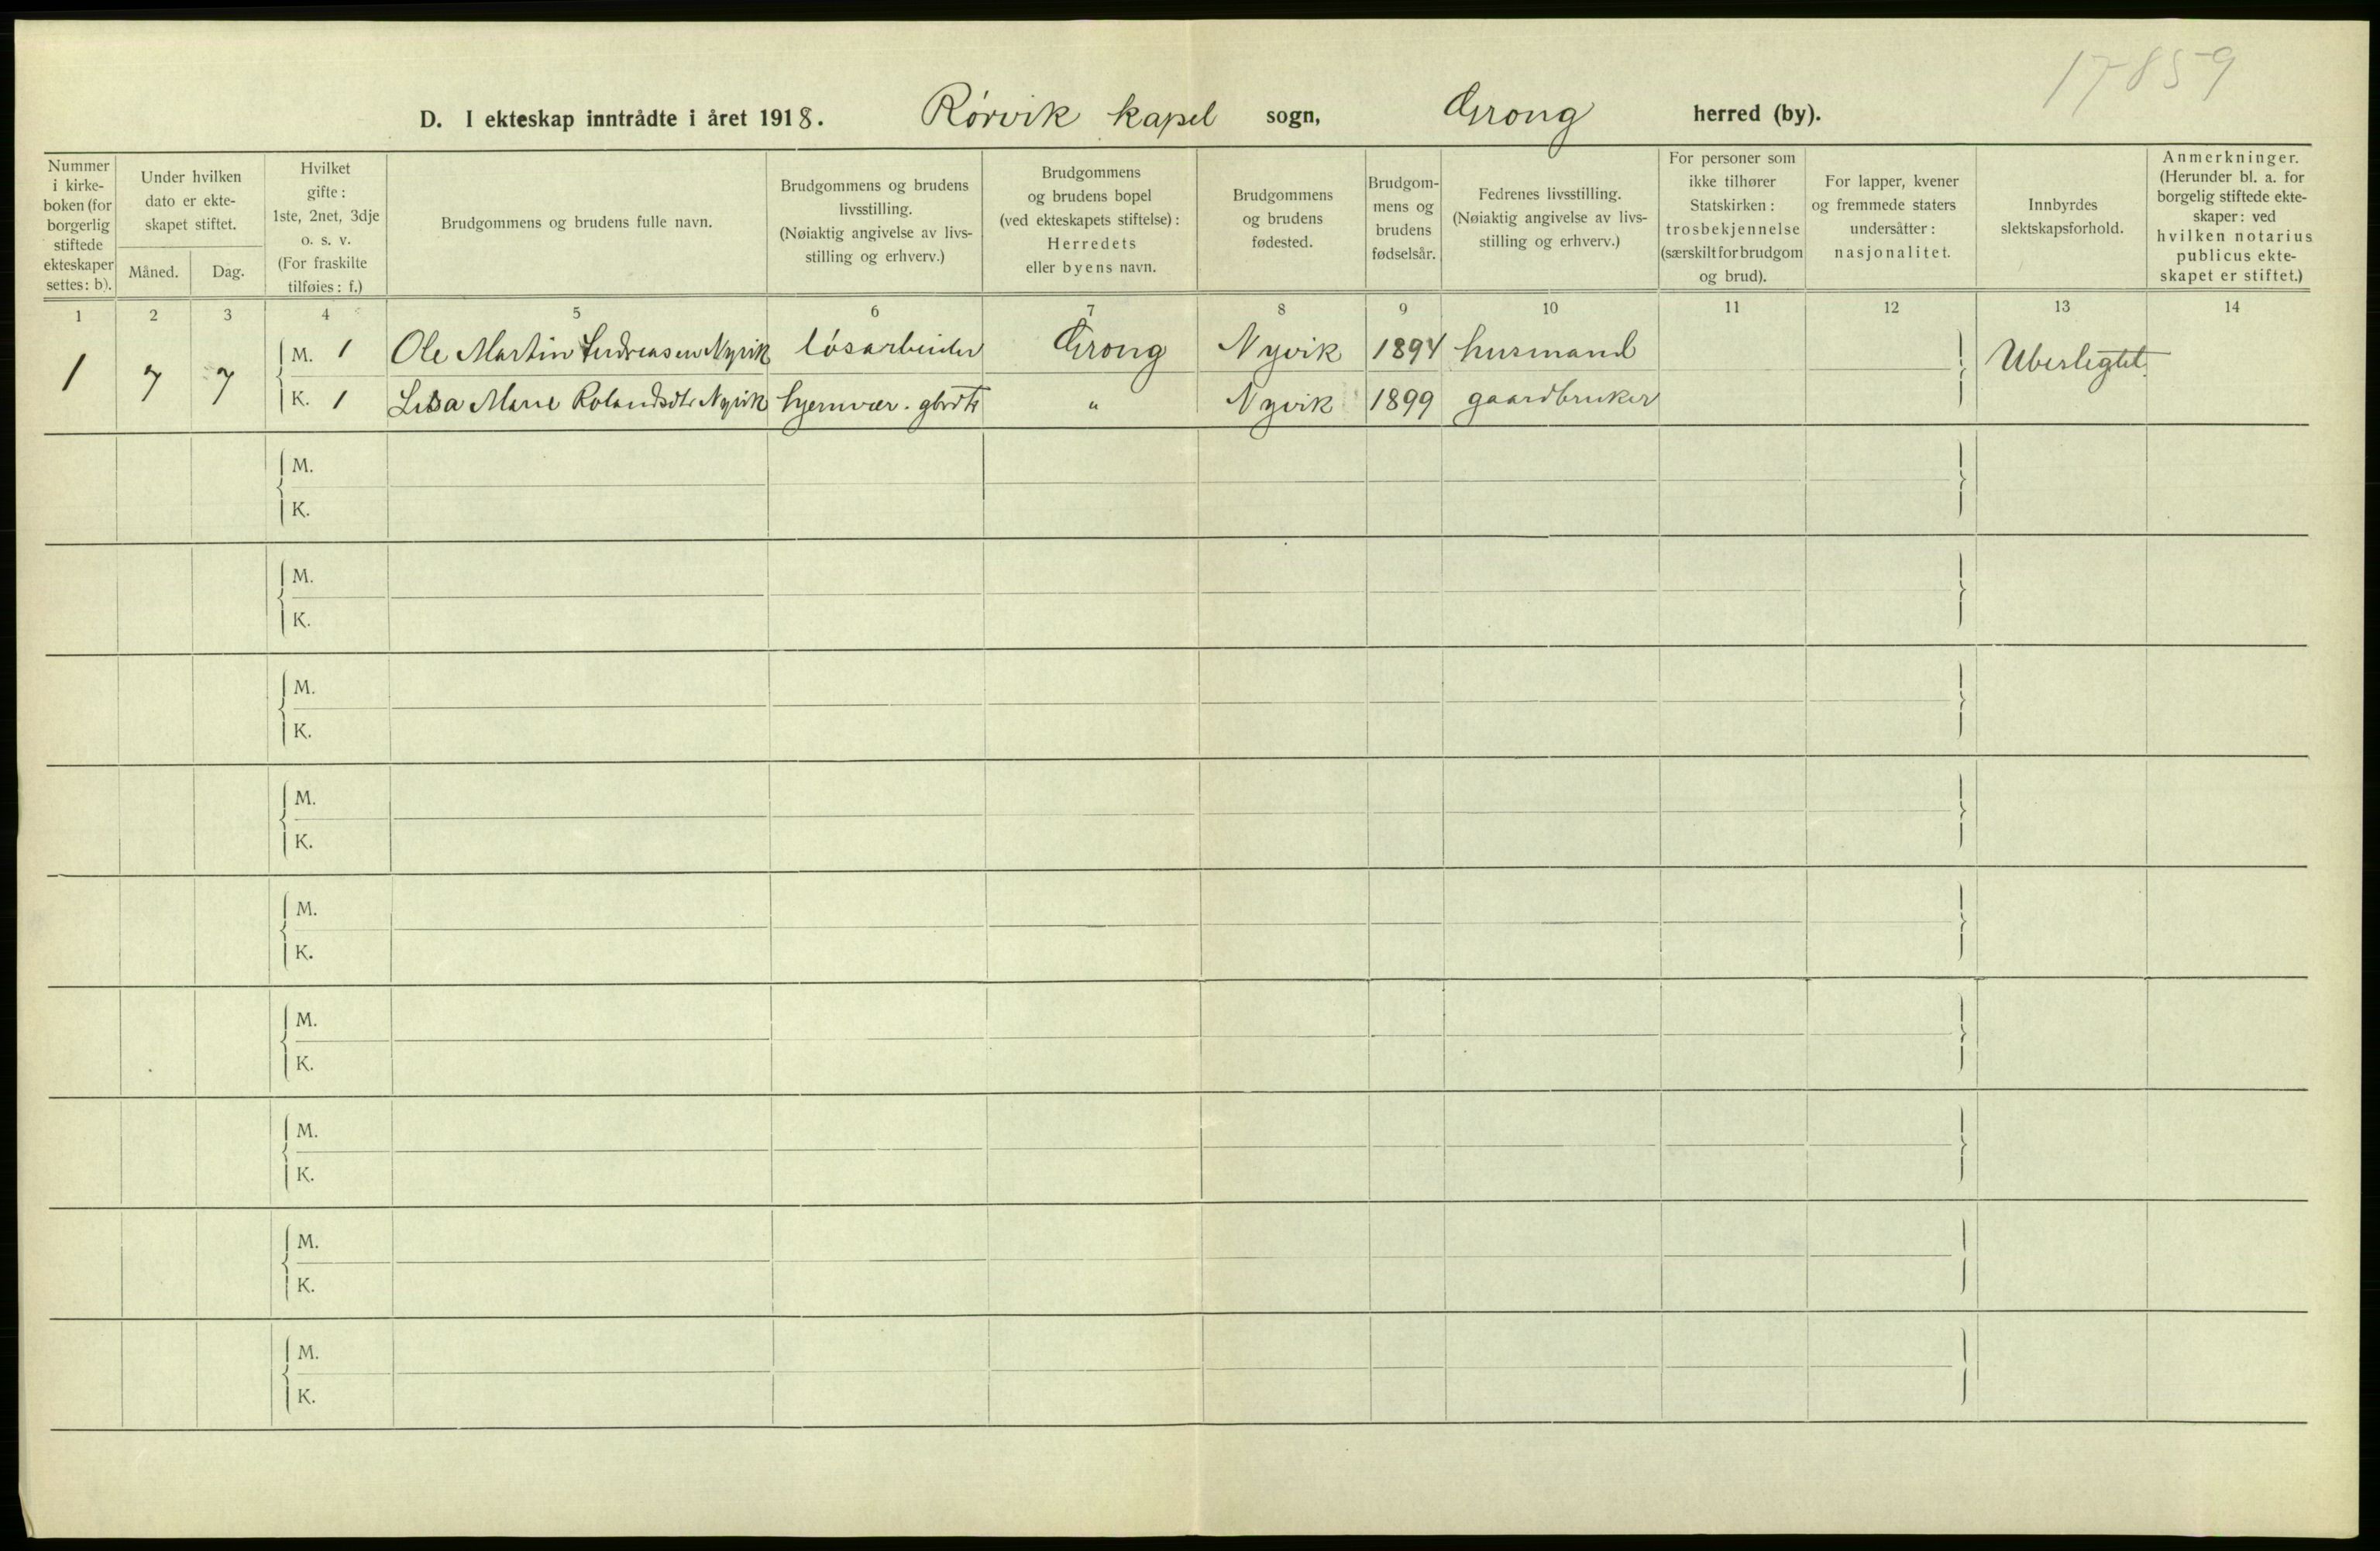 17859
D. I ekteskap inntrådte i året 1918. Rørvik kapel sogn, Grong herred (by).
Nummer
i kirke-
boken (for
borgerlig
stiftede
ekteskaper
settes: b).
Under hvilken
dato er ekte-
skapet stiftet.
Måned. Dag.
Hvilket
gifte:
1ste, 2net, 3dje
o. s. v.
(For fraskilte
tilføies: f.)
Brudgommens og brudens fulle navn.
Brudgommens og brudens
livsstilling.
(Nøiaktig angivelse av livs-
stilling og erhverv.)
Brudgommens
og brudens bopel
(ved ekteskapets stiftelse):
Herredets
eller byens navn.
Brudgommens
og brudens
fødested.
Brudgom-
mens og
brudens
fødselsår.
Fedrenes livsstilling.
(Nøiaktig angivelse av livs-
stilling og erhverv.)
For personer som
ikke tilhører
Statskirken:
trosbekjennelse
(særskilt for brudgom
og brud).
For lapper, kvener
og fremmede staters
undersåtter:
nasjonalitet.
Innbyrdes
slektskapsforhold.
Anmerkninger.
(Herunder bl. a. for
borgelig stiftede ekte-
skaper: ved
hvilken notarius
publicus ekte-
skapet er stiftet.)
1 2 3 4 5 6 7 8 9 10 11 12 13 14
1 7 7 M. 1 Ole Martin Andreasen Nyvik løsarbeider Grong Nyvik 1894 husmand Ubeslegtet.
K. 1 Lisa Marie Rolandsdtr Nyvik hjemvær. gbrdtr " Nyvik 1899 gaardbruker
M.
K.
M.
K.
M.
K.
M.
K.
M.
K.
M.
K.
M.
K.
M.
K.
M.
K.